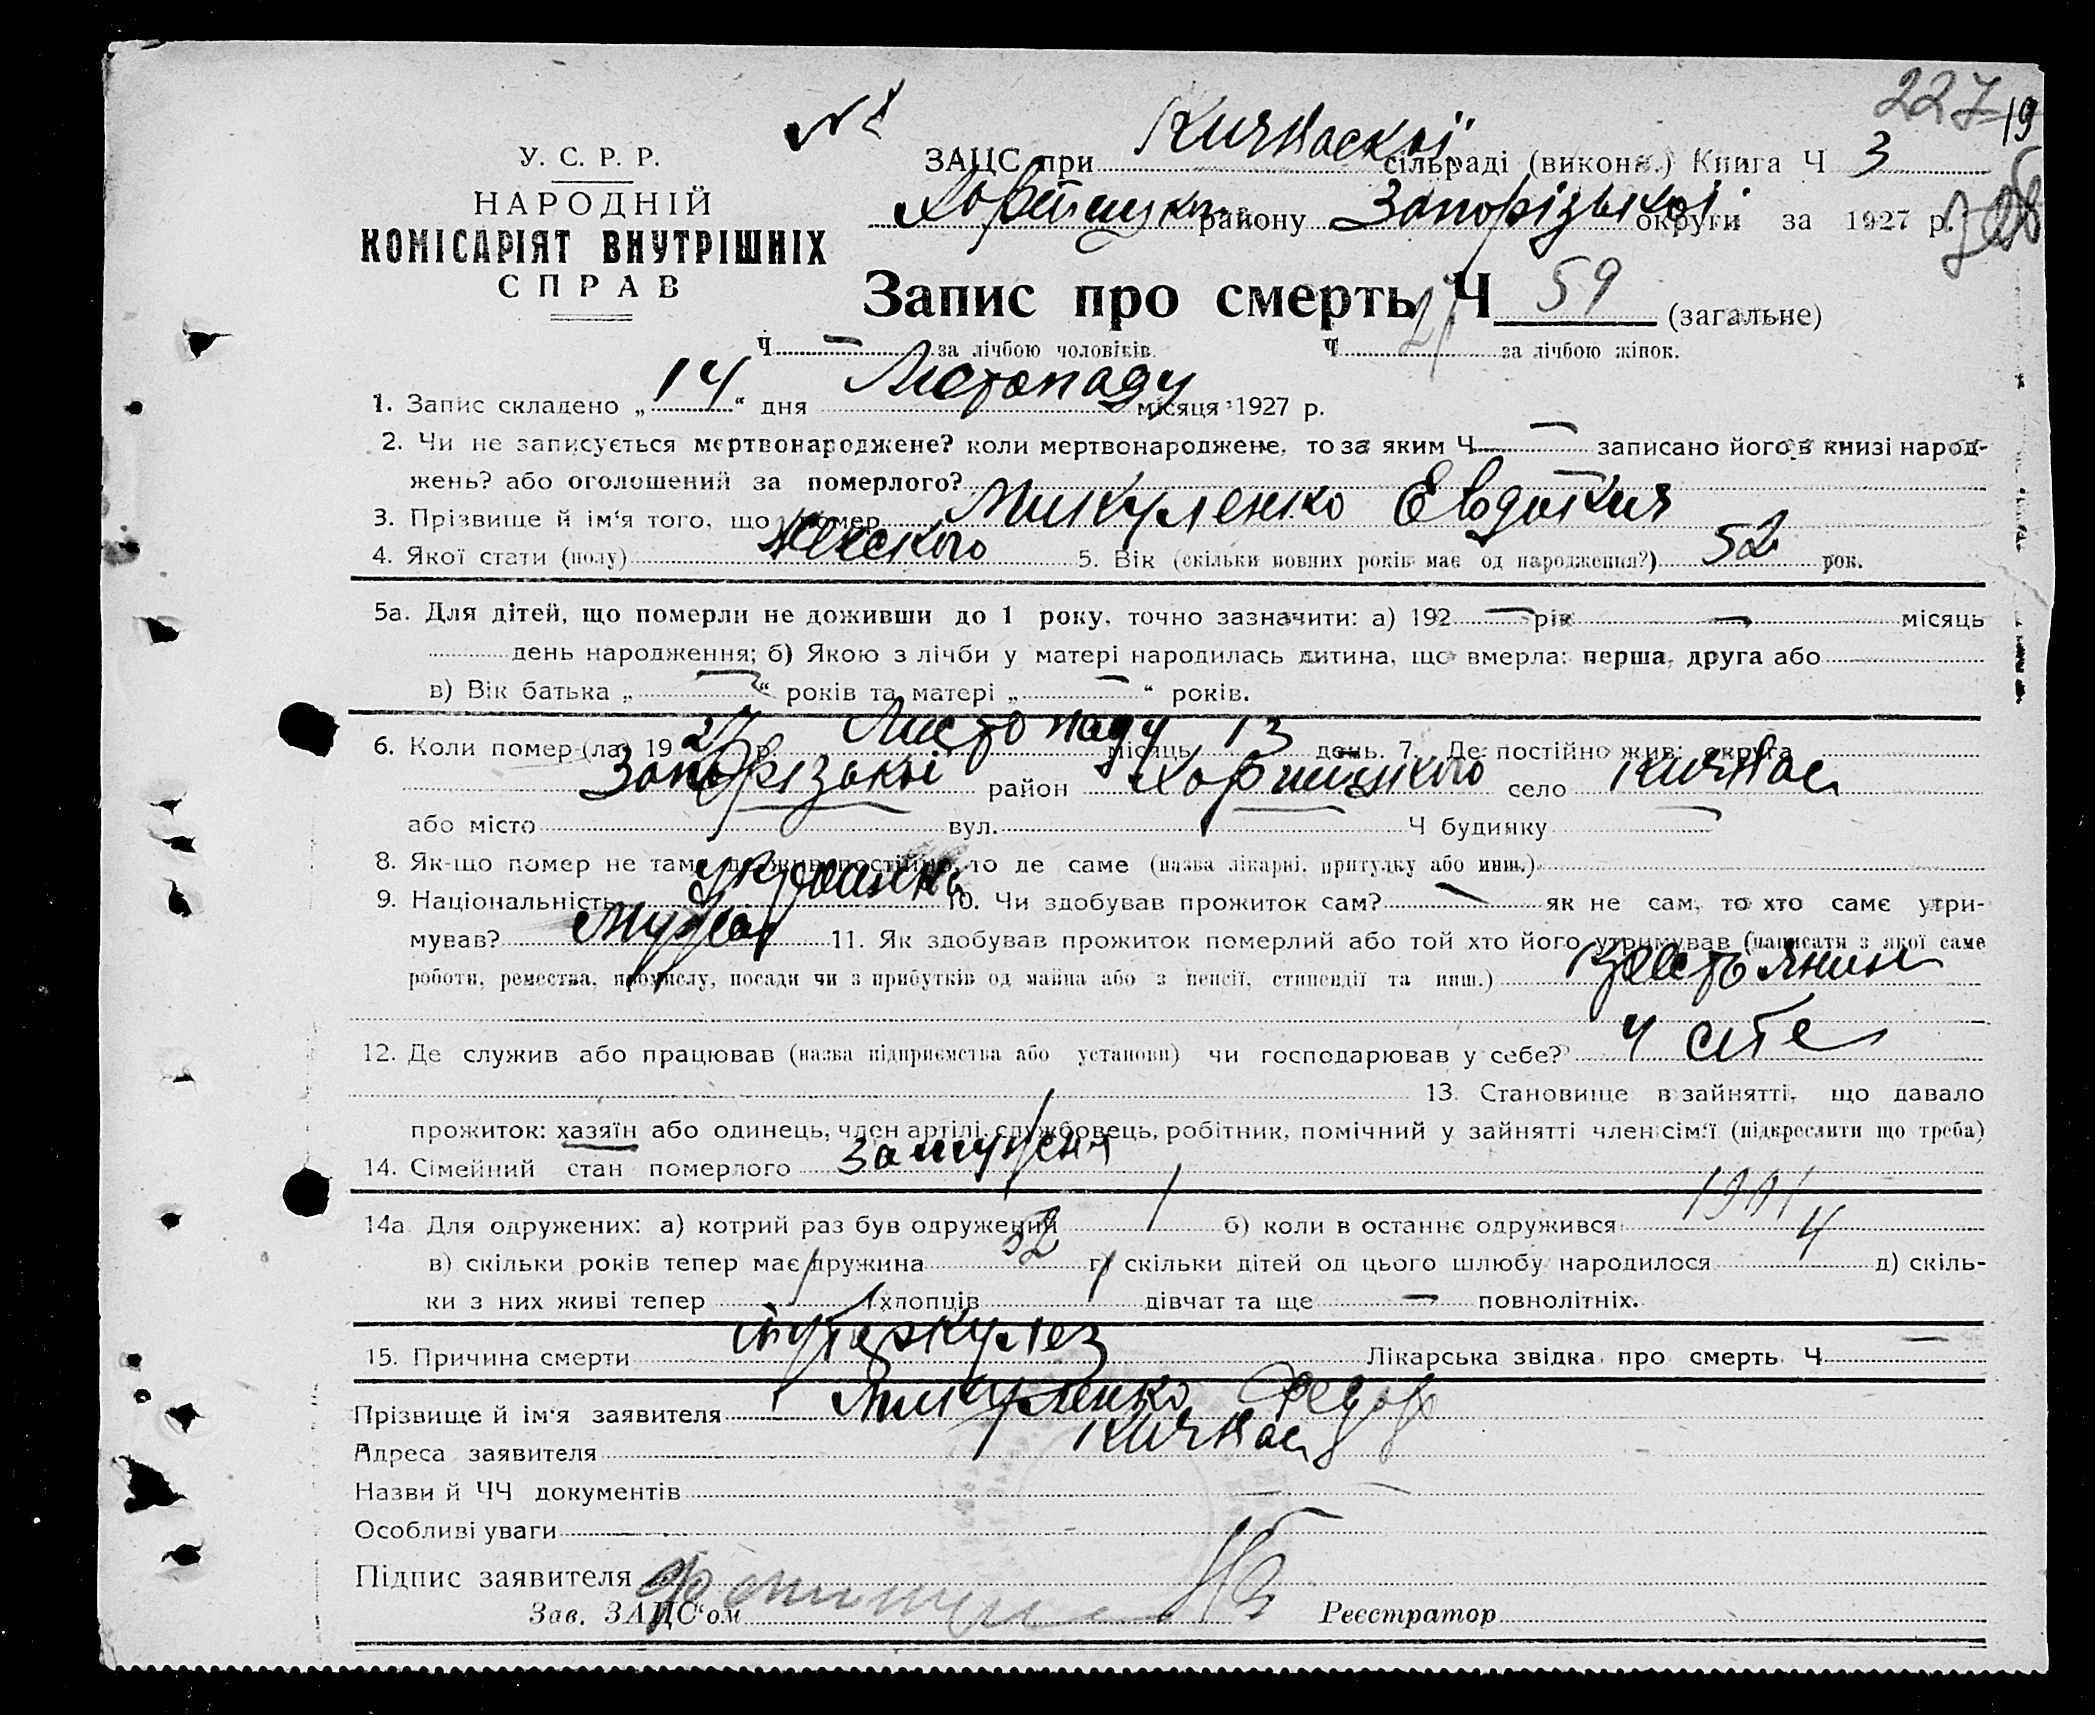 227
19
№
У. С. Р. Р.
НАРОДНІЙ
КОМІСАРІЯТ ВНУТРІШНІХ
СПРАВ
ЗАЦС при Кичкаскої сільраді (викон.) Книга Ч 3
Хортицьк. району Запорізької округи за 1927 р.
Запис про смерть Ч 59 (загальне)
Ч — за лічбою чоловіків. Ч 27 за лічбою жінок.
1. Запис складено „14“ дня Листопаду місяця 1927 р.
2. Чи не записується мертвонароджене? коли мертвонароджене, то за яким Ч — записано його в книзі народ-
жень? або оголошений за померлого?
3. Прізвище й ім'я того, що помер Микуленко Евдокия
4. Якої стати (полу) Женского 5. Вік (скільки повних років має од народження?) 52 рок.
5а. Для дітей, що померли не доживши до 1 року, точно зазначити: а) 192 — рік — місяць
день народження; б) Якою з лічби у матері народилась дитина, що вмерла: перша, друга або
в) Вік батька „—“ років та матері „—“ років.
6. Коли помер (ла) 1927 р. Листопаду місяць 13 день. 7. Де постійно жив: округа
Запорізької район Хортицкого село Кичкас
або місто вул. Ч будинку —
8. Як-що помер не там, де жив постійно, то де саме (назва лікарні, притулку або инш.)
9. Національність украинка 10. Чи здобував прожиток сам? — як не сам, то хто саме утри-
мував? Муж 11. Як здобував прожиток померлий або той хто його утримував (написати з якої саме
роботи, ремества, промислу, посади чи з прибутків од майна або з пенсії, стипендії та инш.) Крестьянин
12. Де служив або працював (назва підприємства або установи) чи господарював у себе? у себе
13. Становище в зайнятті, що давало
прожиток: хазяїн або одинець, член артілі, службовець, робітник, помічний у зайнятті член сім'ї (підкреслити що треба)
14. Сімейний стан померлого Замужня
14а Для одружених: а) котрий раз був одружений 1 б) коли в останнє одружився 1901
в) скільки років тепер має дружина 52 г) скільки дітей од цього шлюбу народилося 4 д) скіль-
ки з них живі тепер 1 хлопців 1 дівчат та ще — повнолітніх.
15. Причина смерти туберкулез Лікарська звідка про смерть Ч —
Прізвище й ім'я заявителя Микуленко Федор
Адреса заявителя Кичкас
Назви й ЧЧ документів
Особливі уваги
Підпис заявителя
Зав. ЗАЦС'ом Реєстратор